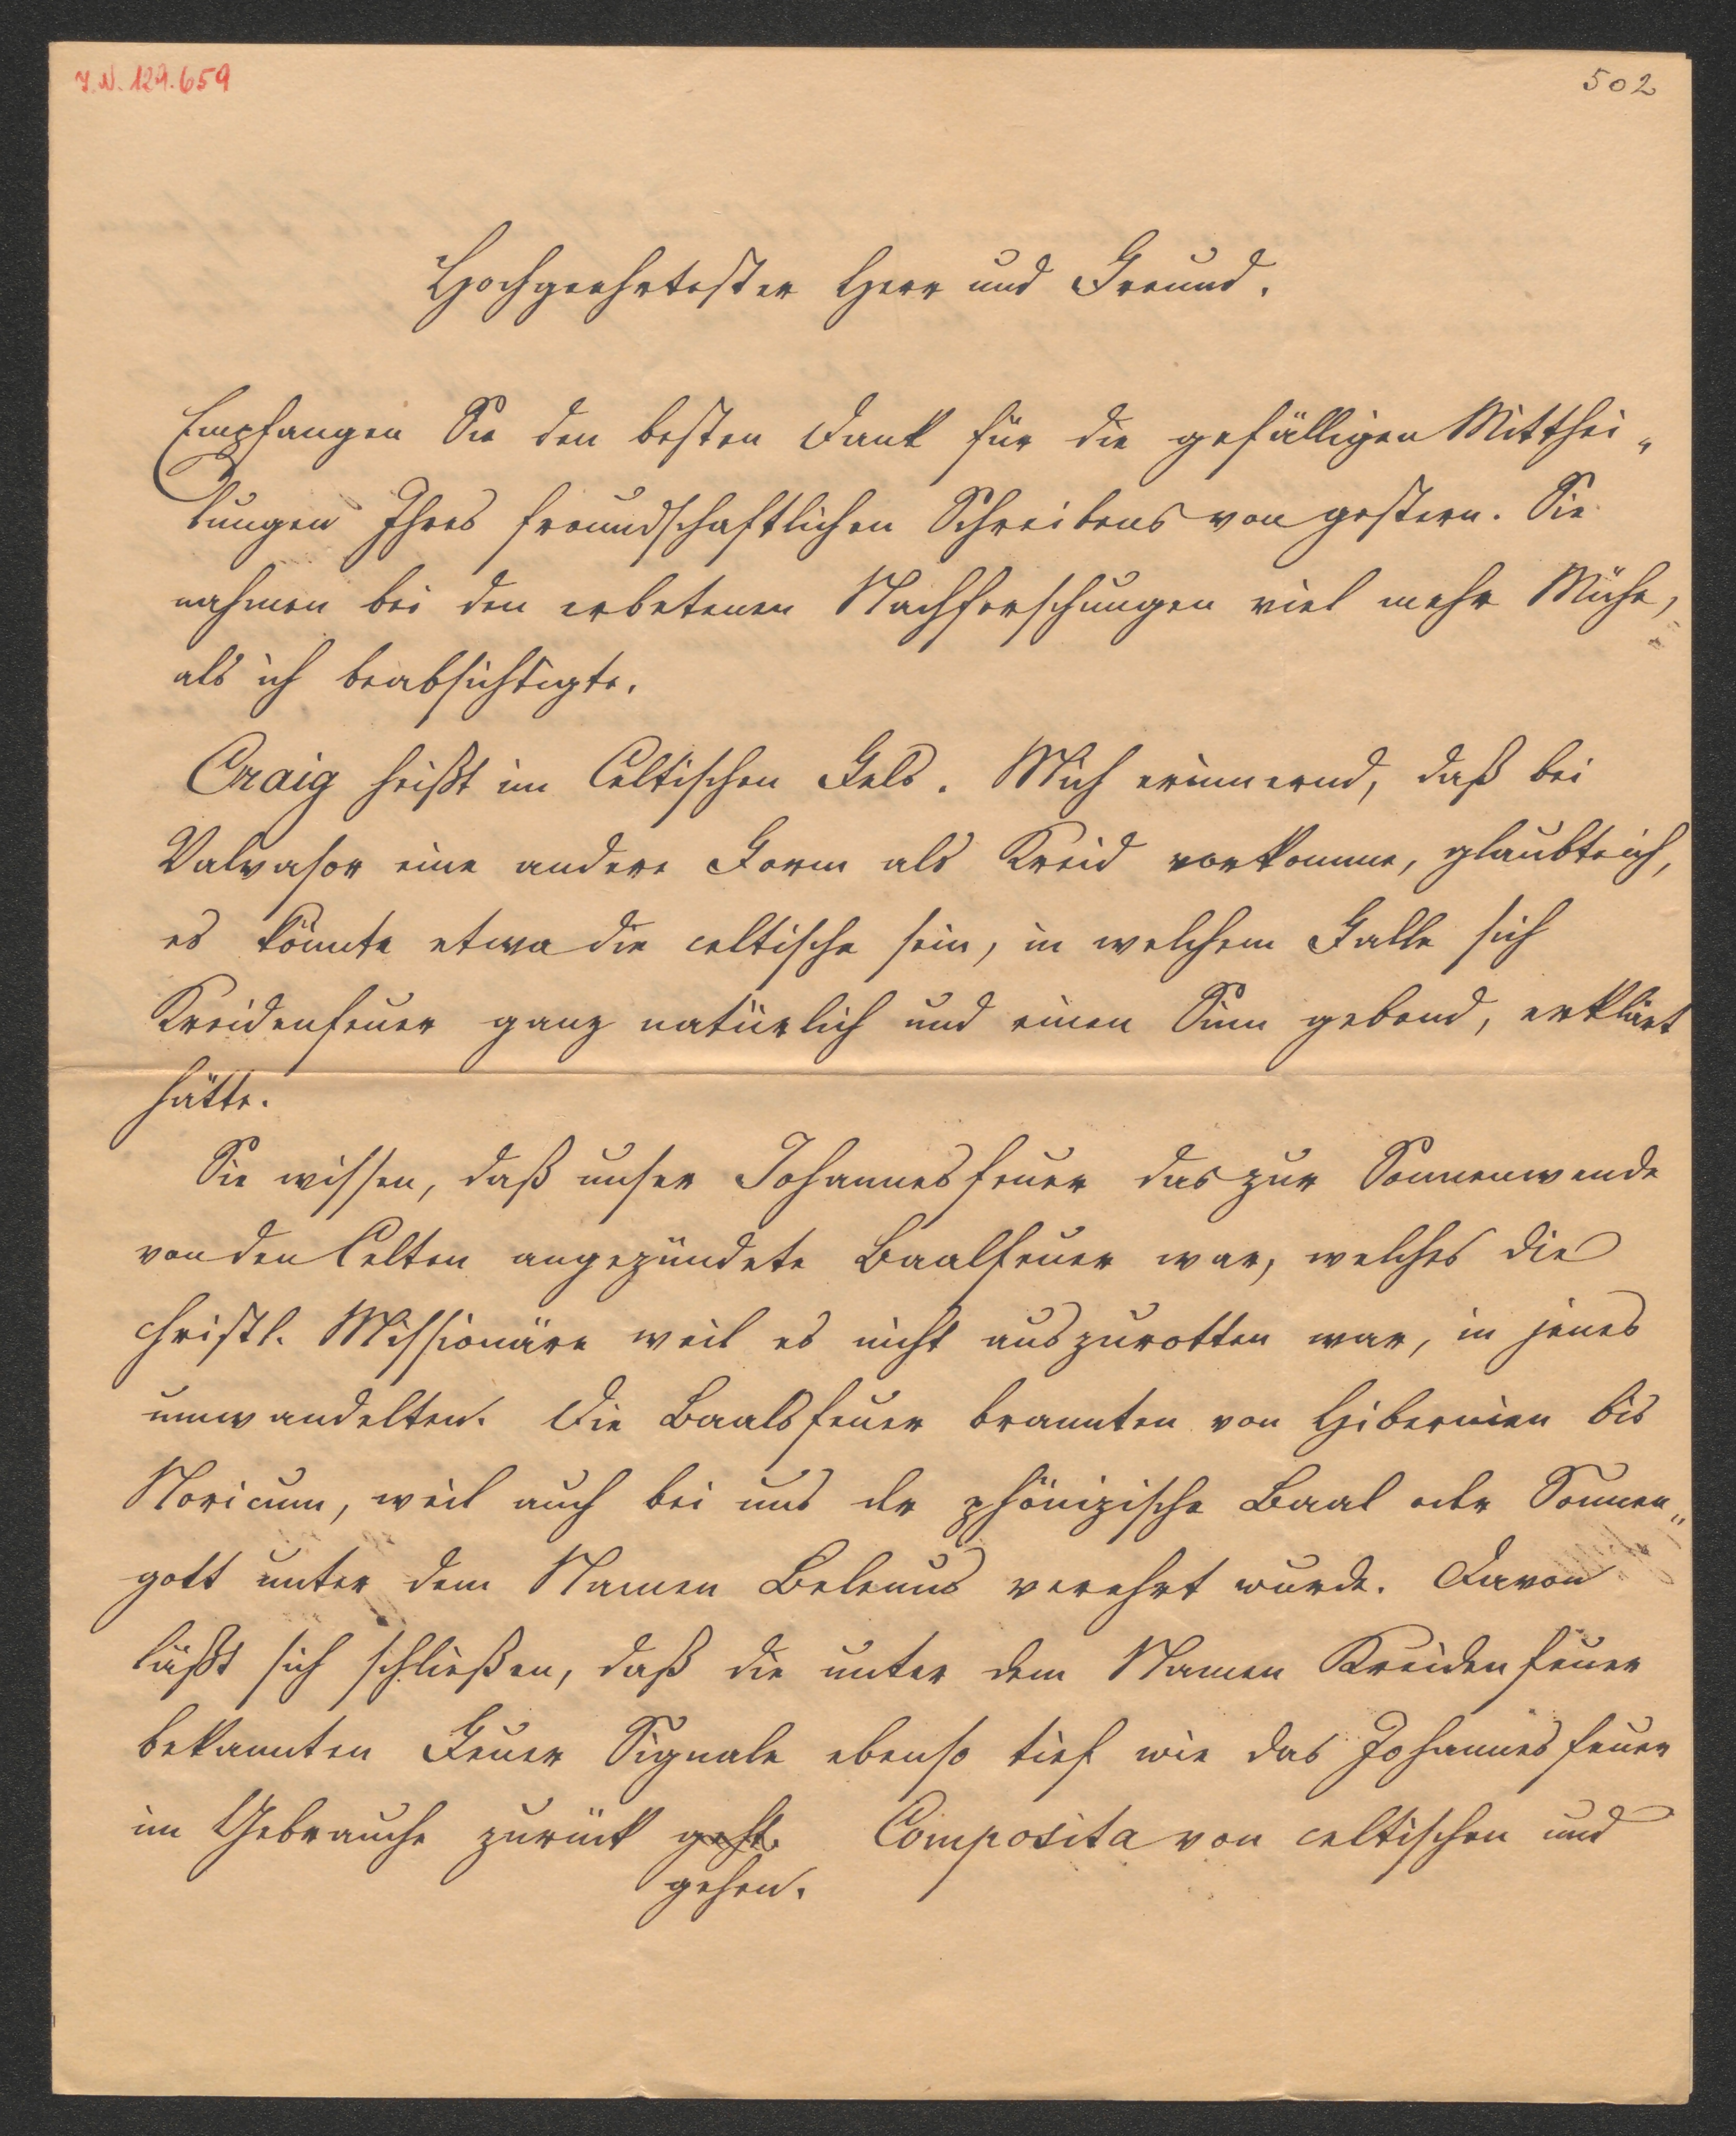 I.N. 129.659
502
Hochgeehrtester Herr und Freund.
Empfangen Sie den besten Dank für die gefälligen Mitthei„
lungen Ihres freundschaftlichen Schreibens von gestern. Sie
nahmen bei den erbetenen Nachforschungen viel mehr Mühe,
als ich beabsichtigte.
Craig heißt im Celtischen Fels. Mich erinnernd, daß bei
Valvasor eine andere Form als Kreid vorkomme, glaubte ich,
es könnte etwa die celtische sein, in welchem Falle sich
Kreidenfeuer ganz natürlich und einen Sinn gebend, erklärt
hätte.
Sie wissen, daß unser Johannesfeuer das zur Sonnenwende
von den Celten angezündete Baalfeuer war, welches die
christl. Missionäre weil es nicht auszurotten war, in jenes
umwandelten. Die Baalsfeuer brannten von Hibernien bis
Noricum, weil auch bei uns der phönizische Baal oder Sonnen„
gott unter dem Namen Belenus verehrt wurde. Davon
läßt sich schließen, daß die unter dem Namen Kreidenfeuer
bekannten Feuer Signale ebenso tief wie das Johannesfeuer
im Gebrauche zurück geht. Composita von celtischen und
gehen.